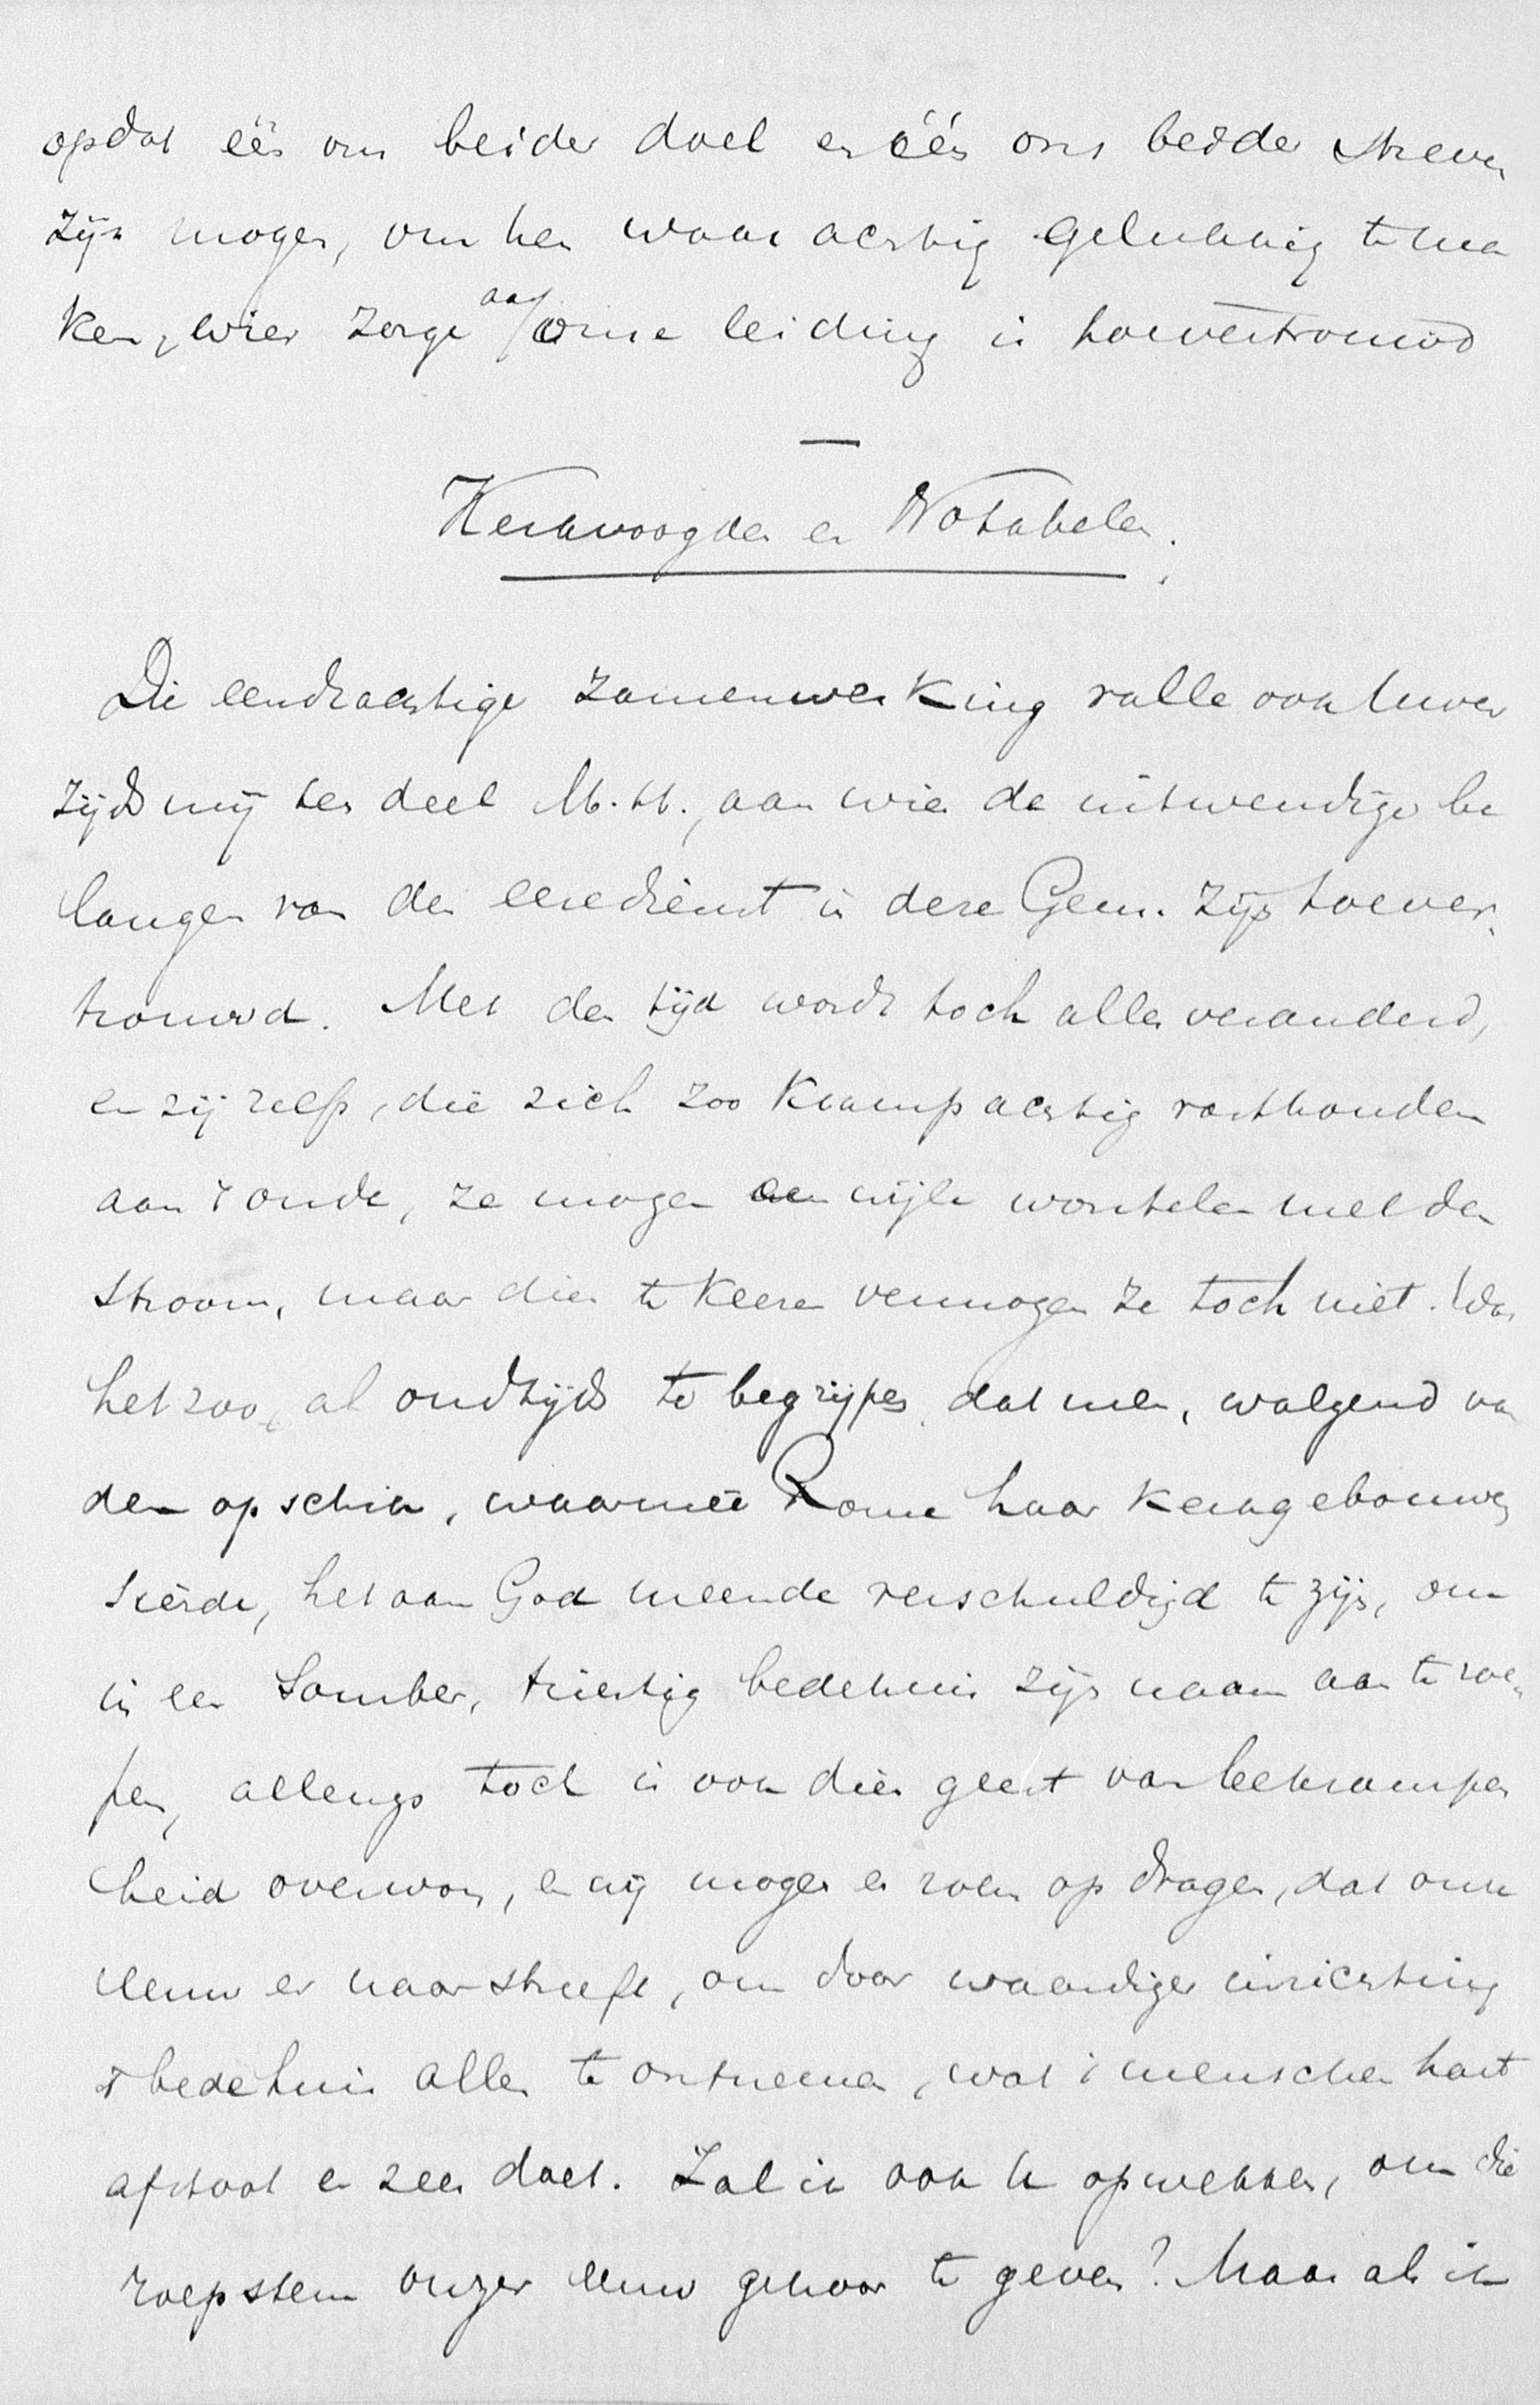 opdat één ons beider doel en één ons beider streven
zijn moge, om hen waarachtig gelukkig te ma
ken, wier zorge aan onze leiding is toevertrouwd
—
Kerkvoogden en Notabelen.
Die eendrachtige zamenwerking valle ook Uwer
zijds mij ten deel M.H., aan wie de uitwendige be
langen van den eeredienst in deze Gem. zijn toever
trouwd. Met den tijd wordt toch alles veranderd,
en zij zelfs, die zich zoo krampachtig vasthouden
aan 't oude, ze mogen een wijle worstelen met den
stroom, maar dien te keeren vermogen ze toch niet. Was
het zoo al oudtijds te begrijpen dat men, walgend van
den opschik, waarmeê Rome haar kerkgebouwen
sierde, het aan God meende verschuldigd te zijn, om
in een somber, triestig bedehuis zijn naam aan te roe
pen, allengs toch is ook die geest van bekrompen
heid overwon, en wij mogen er roem op dragen, dat onze
eeuw er naar streeft, om door waardige inrichting
't bedehuis alles te ontnemen, wat 's menschen hart
afstoot en zeer doet. Zal ik ook U opwekken, om die
roepstem onzer eeuw gehoor te geven? Maar als ik